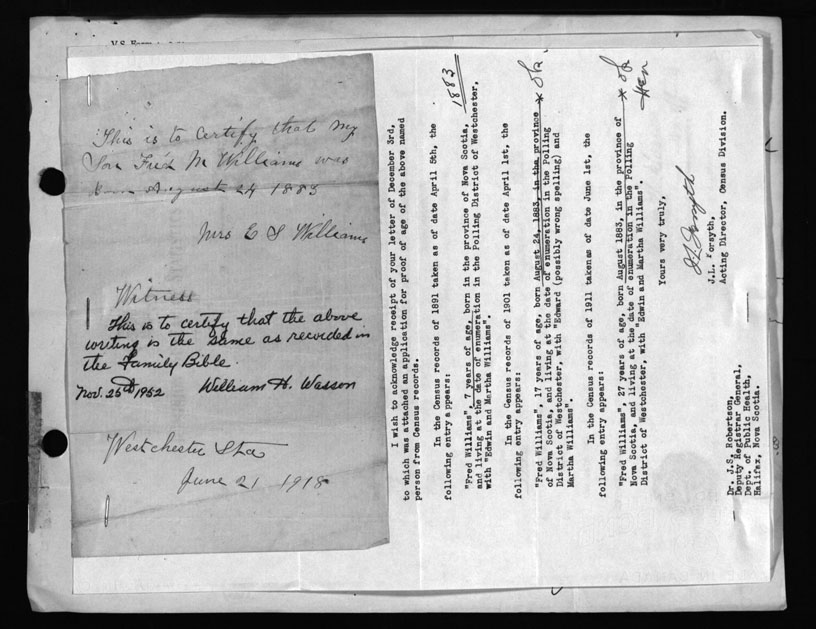 This is to certify that my
Son Fred M Williams was
born August 24 1883
Mrs E S Williams
Witness
This is to certify that the above
writing is the same as recorded in
the Family Bible.
Nov. 25th 1952 William H. Wasson
Westchester Sta
June 21 1918
I wish to acknowledge receipt of your letter of December 3rd,
to which was attached an application for proof of age of the above named
person from Census records.
In the Census records of 1891 taken as of date April 5th, the
following entry appears:
1883
"Fred Williams", 7 years of age, born in the province of Nova Scotia,
and living at the date of enumeration in the Polling District of Westchester,
with "Edwin and Martha Williams".
In the Census records of 1901 taken as of date April 1st, the
following entry appears:
"Fred Williams", 17 years of age, born August 24, 1883, in the province * ok
of Nova Scotia, and living at the date of enumeration in the Polling
District of Westchester, with "Edward (possibly wrong spelling) and
Martha Williams".
In the Census records of 1911 takenas of date June 1st, the
following entry appears:
"Fred Williams", 27 years of age, born August 1883, in the province of * ok
Nova Scotia, and living at the date of enumeration in the Polling
District of Westchester, with "Edwin and Martha Williams".
Yours very truly,
J.L. Forsyth
J.L. Forsyth,
Acting Director, Census Division.
Dr. J.S. Robertson,
Deputy Registrar General,
Dept. of Public Health,
Halifax, Nova Scotia.